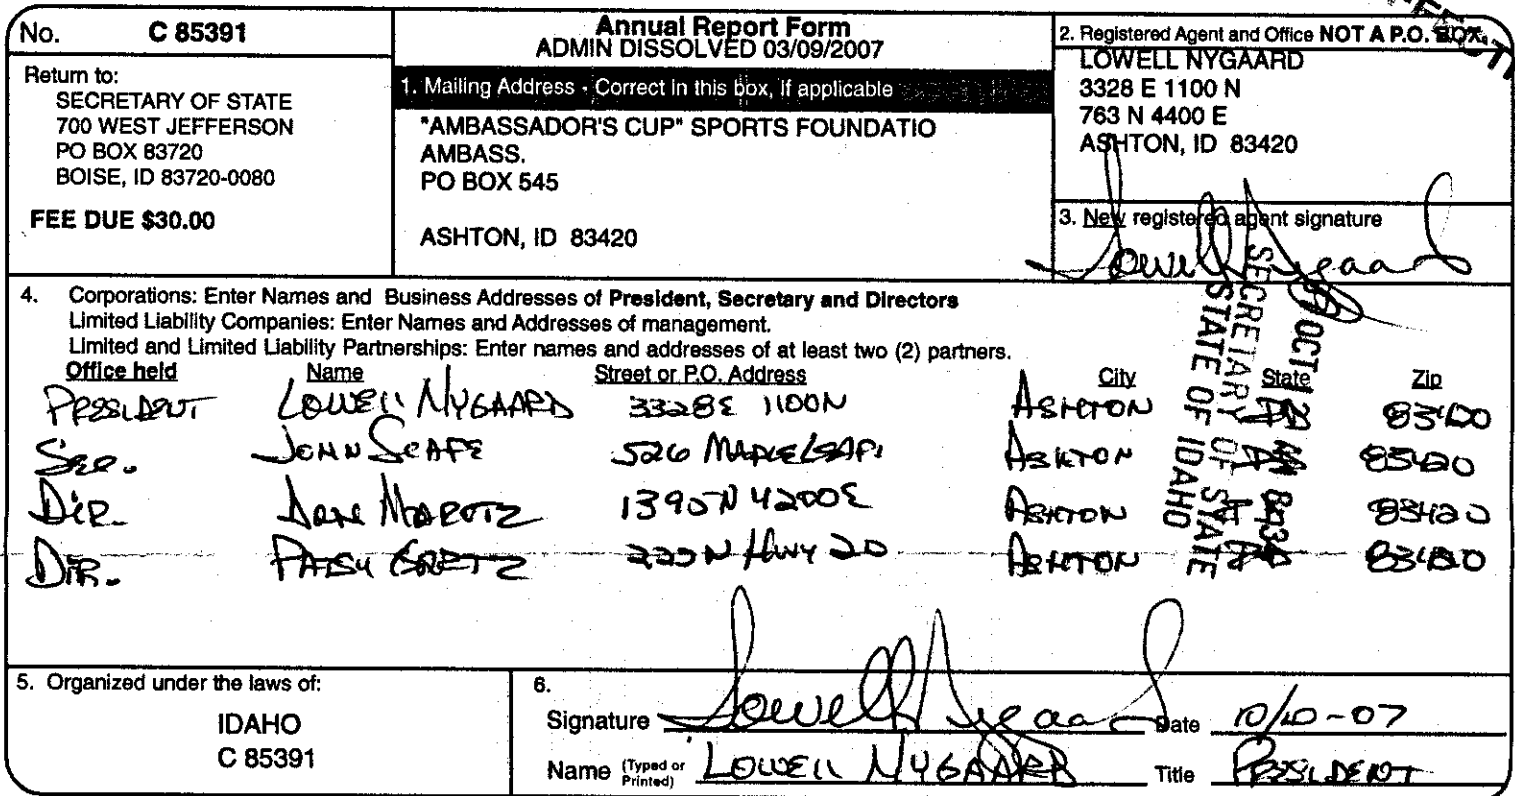 No. C 85391
Return to:
SECRETARY OF STATE
700 WEST JEFFERSON
PO BOX 83720
BOISE, ID 83720-0080
FEE DUE $30.00
Annual Report Form
ADMIN DISSOLVED 03/09/2007
1. Mailing Address - Correct in this box, if applicable
"AMBASSADOR'S CUP" SPORTS FOUNDATIO
AMBASS.
PO BOX 545
ASHTON, ID 83420
2. Registered Agent and Office NOT A P.O. BOX.
LOWELL NYGAARD
3328 E 1100 N
763 N 4400 E
ASHTON, ID 83420
3. New registered agent signature
Lowell Nygaard
4. Corporations: Enter Names and Business Addresses of President, Secretary and Directors
Limited Liability Companies: Enter Names and Addresses of management.
Limited and Limited Liability Partnerships: Enter names and addresses of at least two (2) partners.
Office held Name Street or P.O. Address City State Zip
PRESIDENT LOWELL NYGAARD 3328E 1100N ASHTON 83420
SEC. JOHN SCAFE 526 MAPLELEAF ASHTON 83420
DIR. 1395N 4200E ASHTON 83420
DIR. PATSY N HWY 20 ASHTON 83420
SECRETARY OF STATE
STATE OF IDAHO
5. Organized under the laws of:
IDAHO
C 85391
6.
Signature Lowell Nygaard Date 10/10-07
Name (Typed or Printed) LOWELL NYGAARD Title PRESIDENT